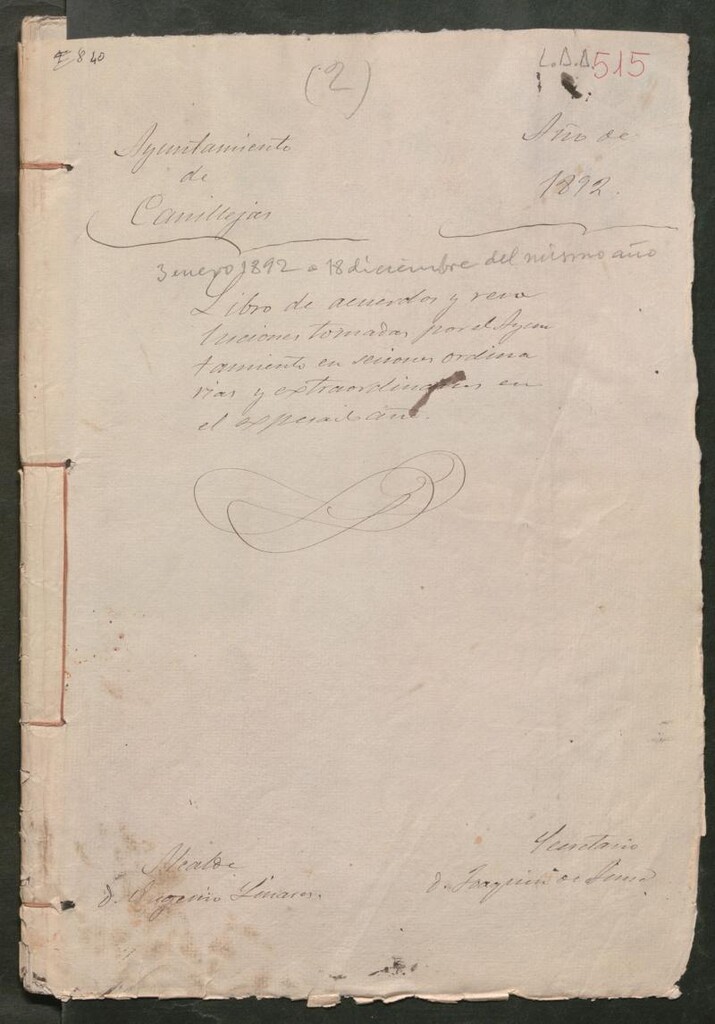 840
(2)
L.D.A. 515
Ayuntamiento
de
Canillejas
Año de
1892.
3 enero 1892 a 18 diciembre del mismo año
Libro de acuerdos y reso
luciones tomadas por el Ayun
tamiento en seciones ordina
rias y extraordinarias en
el expresado año.
Alcalde
D. Eugenio Linares.
Secretario
D. Joaquin de